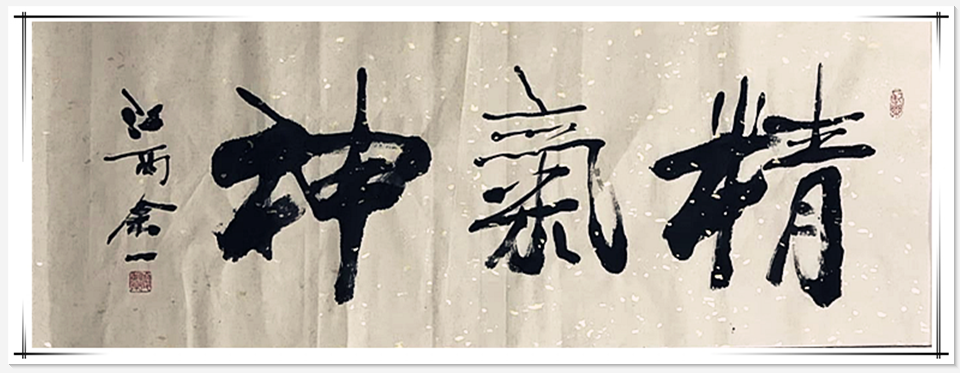 精氣神
江南余一